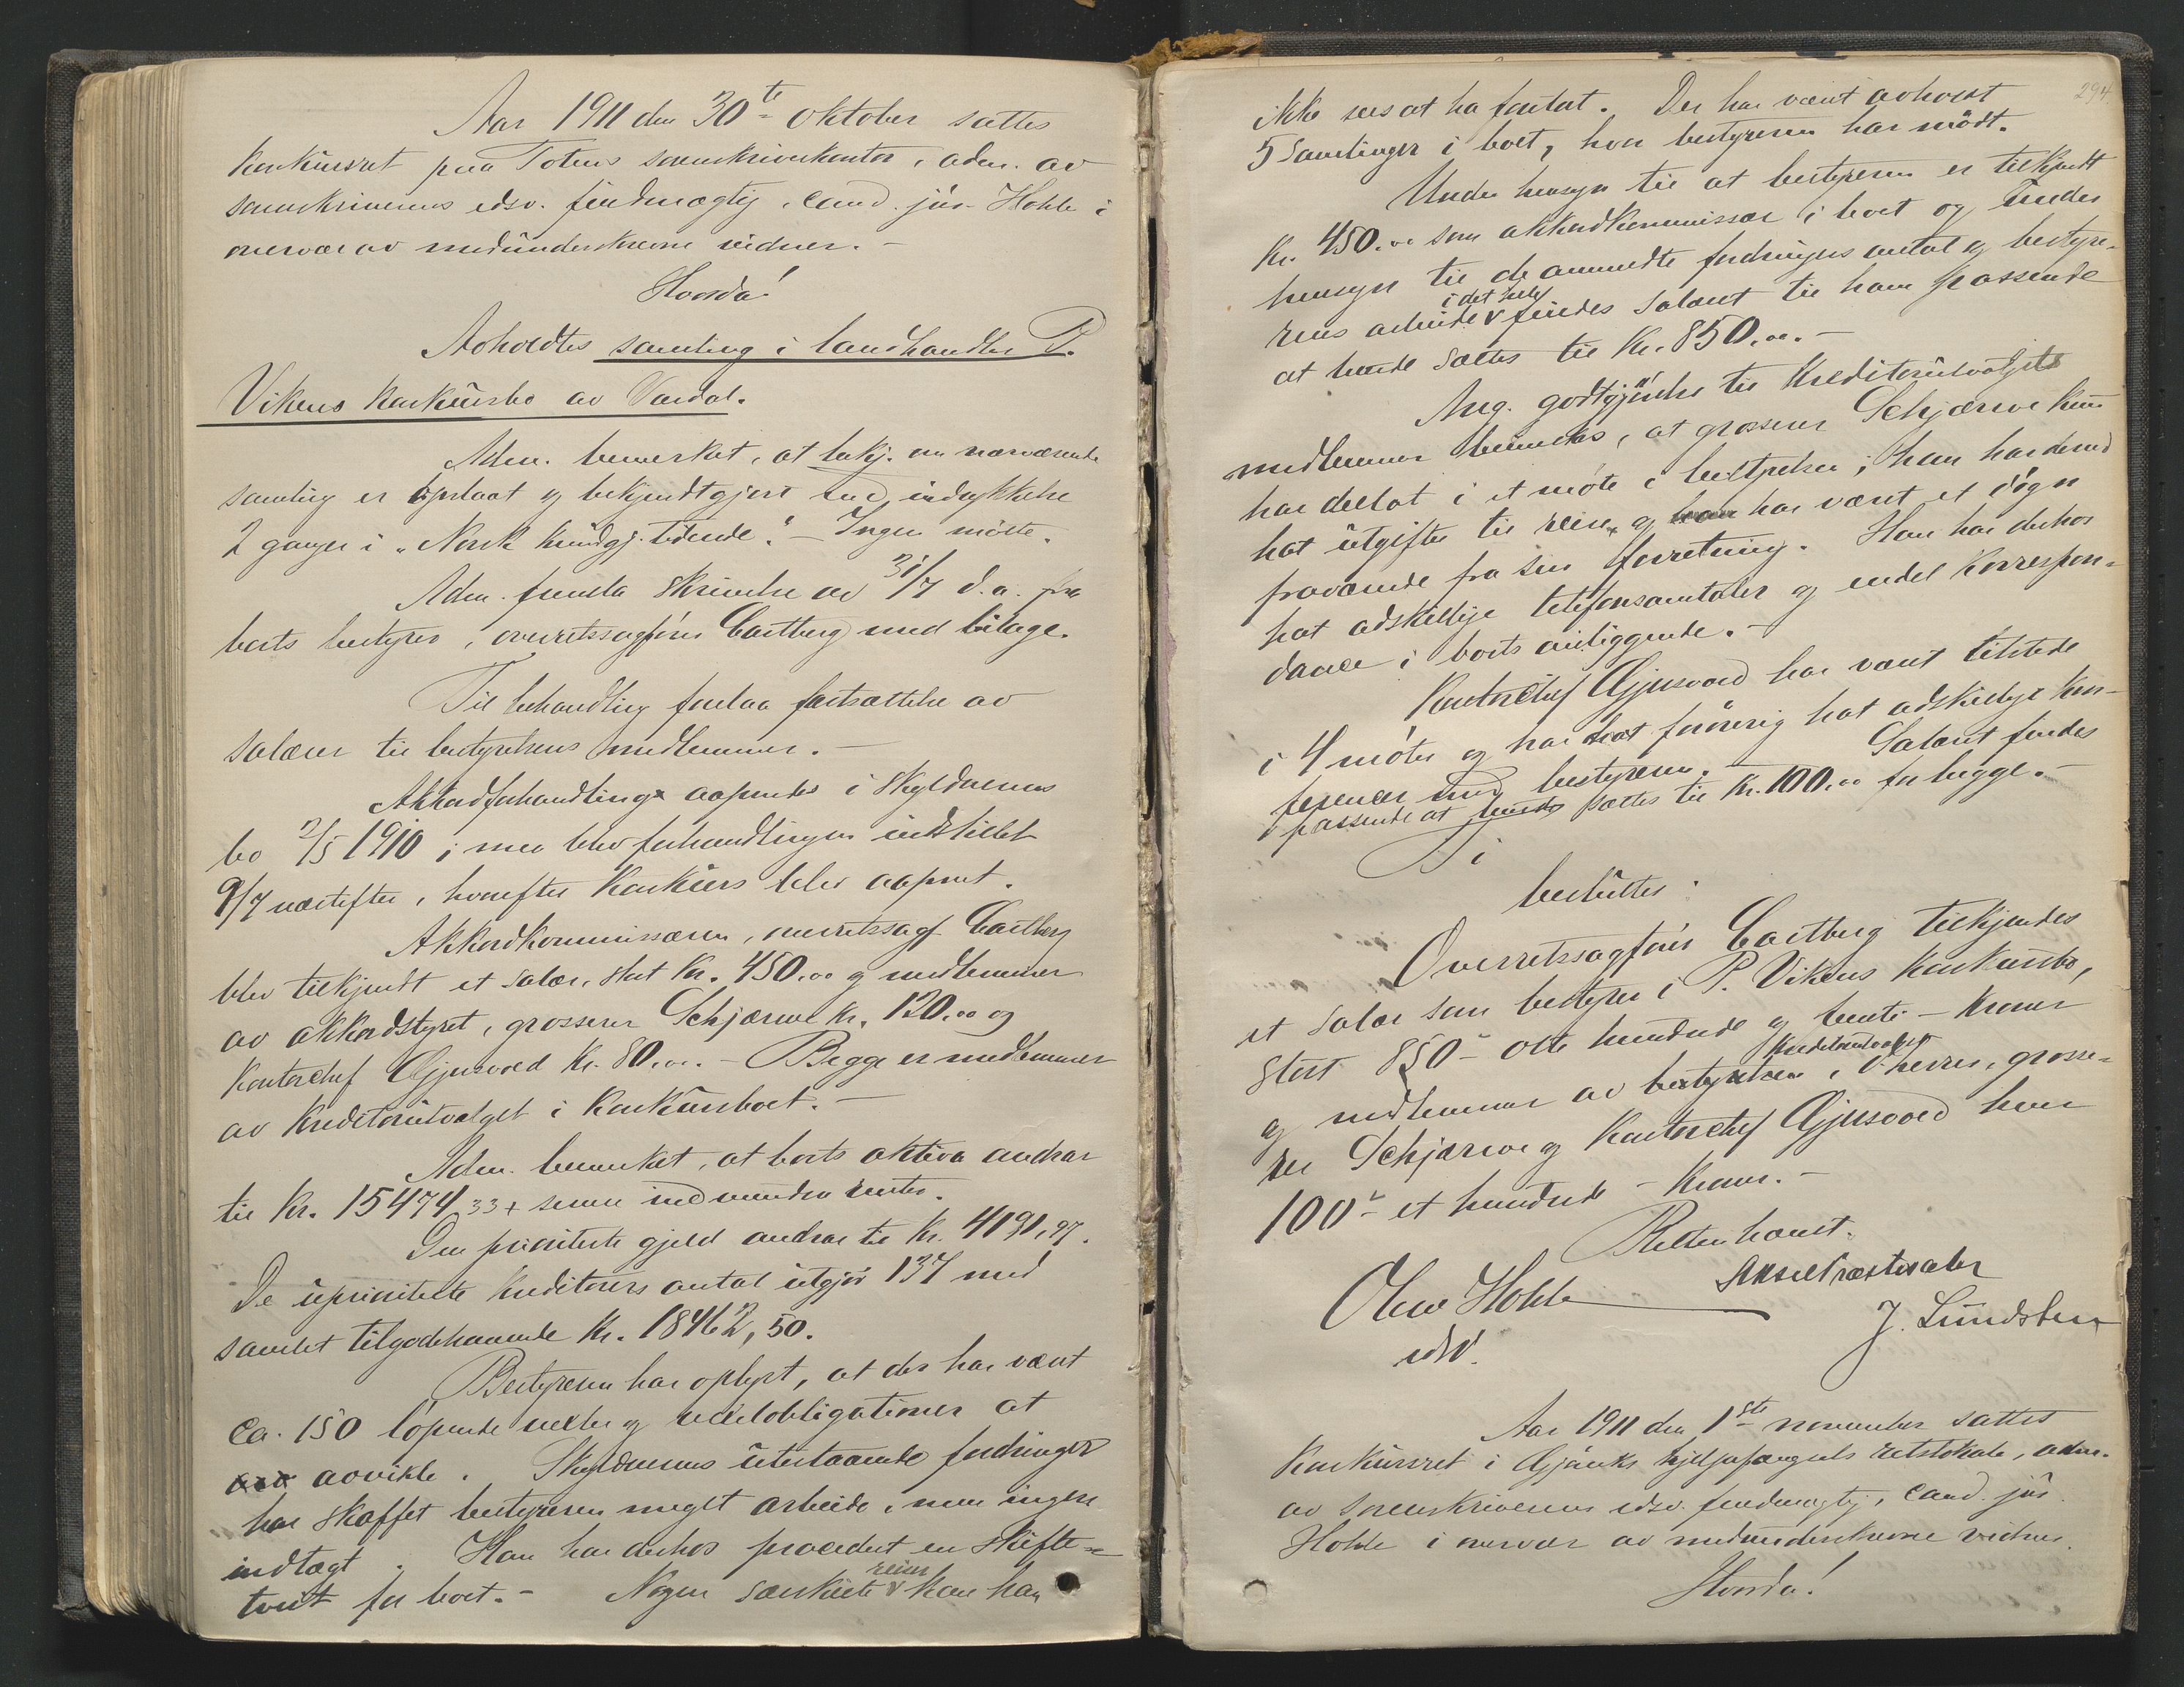 Aar 1911 den 30te oktober sattes
konkursret paa Totens sorenskriverkontor, adm. av
sorenskriverens edsv. fuldmægtig, cand. jur. Hohle i
overvær av medunderskrevne vidner. -
Hvorda!
Avholdtes samling i landhandler P.
Vikens konkursbo av Vardal.
Adm. bemerket, at bekj. om nærværende
samling er opslaat og bekjendtgjort ved indrykkelse
2 ganger i "Norsk kundgj. tidende". - Ingen møtte.
Adm. fremla skrivelse av 31/7 d. a. fra
boets bestyrer, overretssagfører Castberg med bilage.
Til behandling forelaa fastsættelse av
salærer til bestyrelsens medlemmer. -
Akkordforhandling aapnedes i skyldnerens
bo 2/5 1910; men blev forhandlingen indstillet
9/7 næstefter, hvorefter konkurs blev aapnet.
Akkordkommissæren, overretssagf. Castberg
blev tilkjendt et salær, stort kr. 450.00 og medlemmer
av akkordstyret, grosserer Schjærve kr. 120.00 og
kontorchef Gjersvold kr. 80.00. - Begge er medlemmer
av kreditorutvalget i konkursboet. -
Adm. bemerket, at boets aktiva andrar
til kr. 15474,33 + senere indvundne renter.
Den prioriterte gjeld andrar til kr. 4191,97.
De uprioriterte kreditorers antal utgjør 137 med
samlet tilgodehavende kr. 18462,50.
Bestyreren har oplyst, at der har været
ca. 150 løpende veksler og vekselobligationer at
avvikle. Skyldnerens utestaaende fordringer
har skaffet bestyreren meget arbeide, men ingen
indtægt. Han har derhos procedert en skifte=
tvist for boet. - Nogen særskilte reiser kan han
294.
ikke sees at ha foretat. Der har været avholdt
5 samlinger i boet, hvor bestyreren har mødt.
Under hensyn til at bestyreren er tilkjendt
kr. 450.00 som akkordkommissær i boet og under
hensyn til de anmeldte fordringers antal og bestyre=
rens arbeide i det hele findes salæret til ham passende
at burde sættes til kr. 850.00. -
Ang. godtgjørelse til kreditorutvalgets
medlemmer bemerkes, at grosserer Schjærve kun
har deltat i et møte i bestyrelsen; han har derved
hat utgifter til reise, og har været et døgn
fraværende fra sin forretning. Han har derhos
hat adskillige telefonsamtaler og endel korrespon=
dance i boets anliggende. -
Kontorchef Gjersvold har været tilstede
i 4 møter og har forøvrig hat adskillige kon=
ferencer med bestyreren. Salæret findes
passende at burde sættes til kr. 100.00 for begge. -
Ti
besluttes:
Overretssagfører Castberg tilkjendes
et salær som bestyrer i P. Vikens konkursbo,
stort 850 - otte hundrede og femti - kroner
og medlemmer av kreditorutvalget, herrer, grosse=
rer Schjærve og kontorchef Gjersvold hver
100 - et hundrede - kroner. -
Retten hævet.
Olew Hohle
edsv.
Aksel Præstesæter
J. Lundsten
Aar 1911 den 1ste november sattes
konkursret i Gjøviks hjelpefængsels retslokale, adm.
av sorenskriverens edsv. fuldmægtig, cand. jur.
Hohle i overvær av medunderskrevne vidner.
Hvorda!